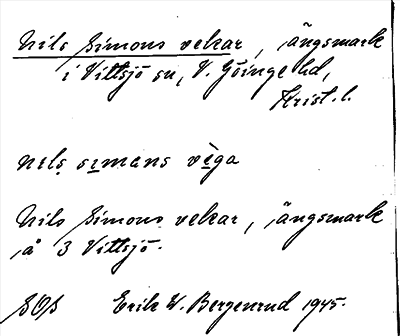 Nils Simons vekar, ängsmark
i Vittsjö sn, V. Göinge hd,
Krist. l.
nɩls sɩmáns vèga
Nils Simons vekar, ängsmark
å 3 Vittsjö.
SOS Erik W. Bergenrud 1945.